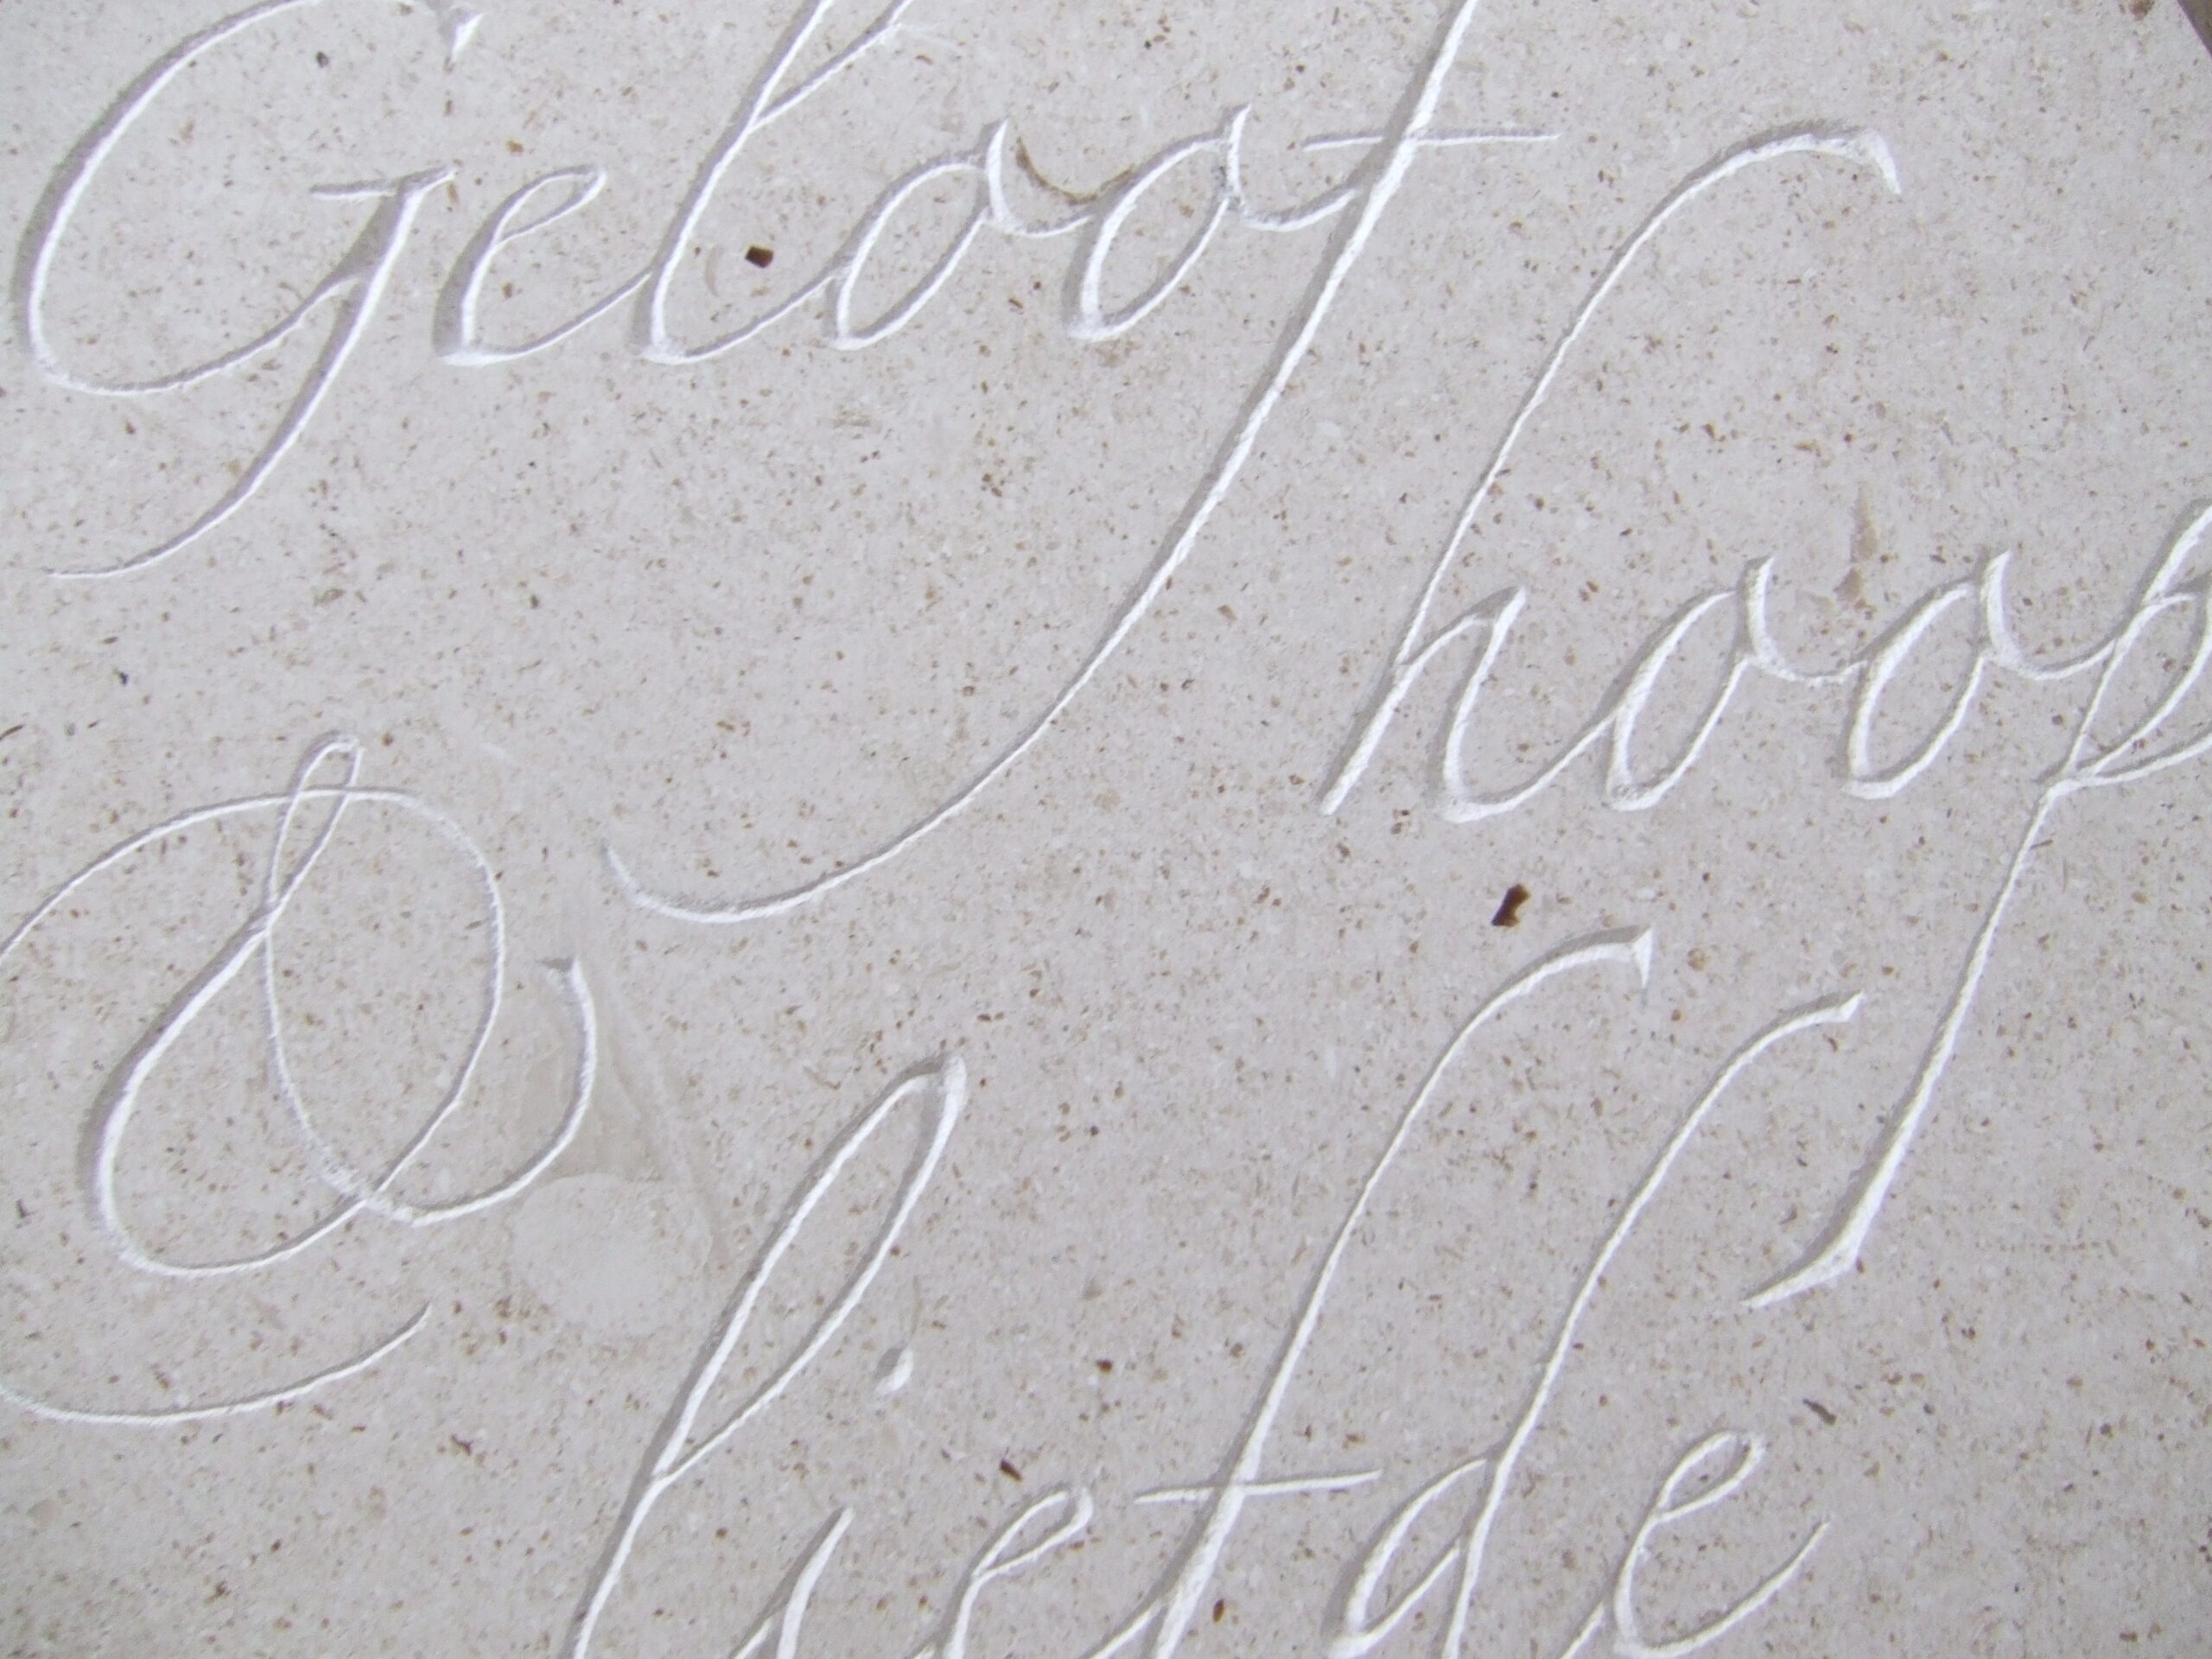 Geloof
hoop
& liefde